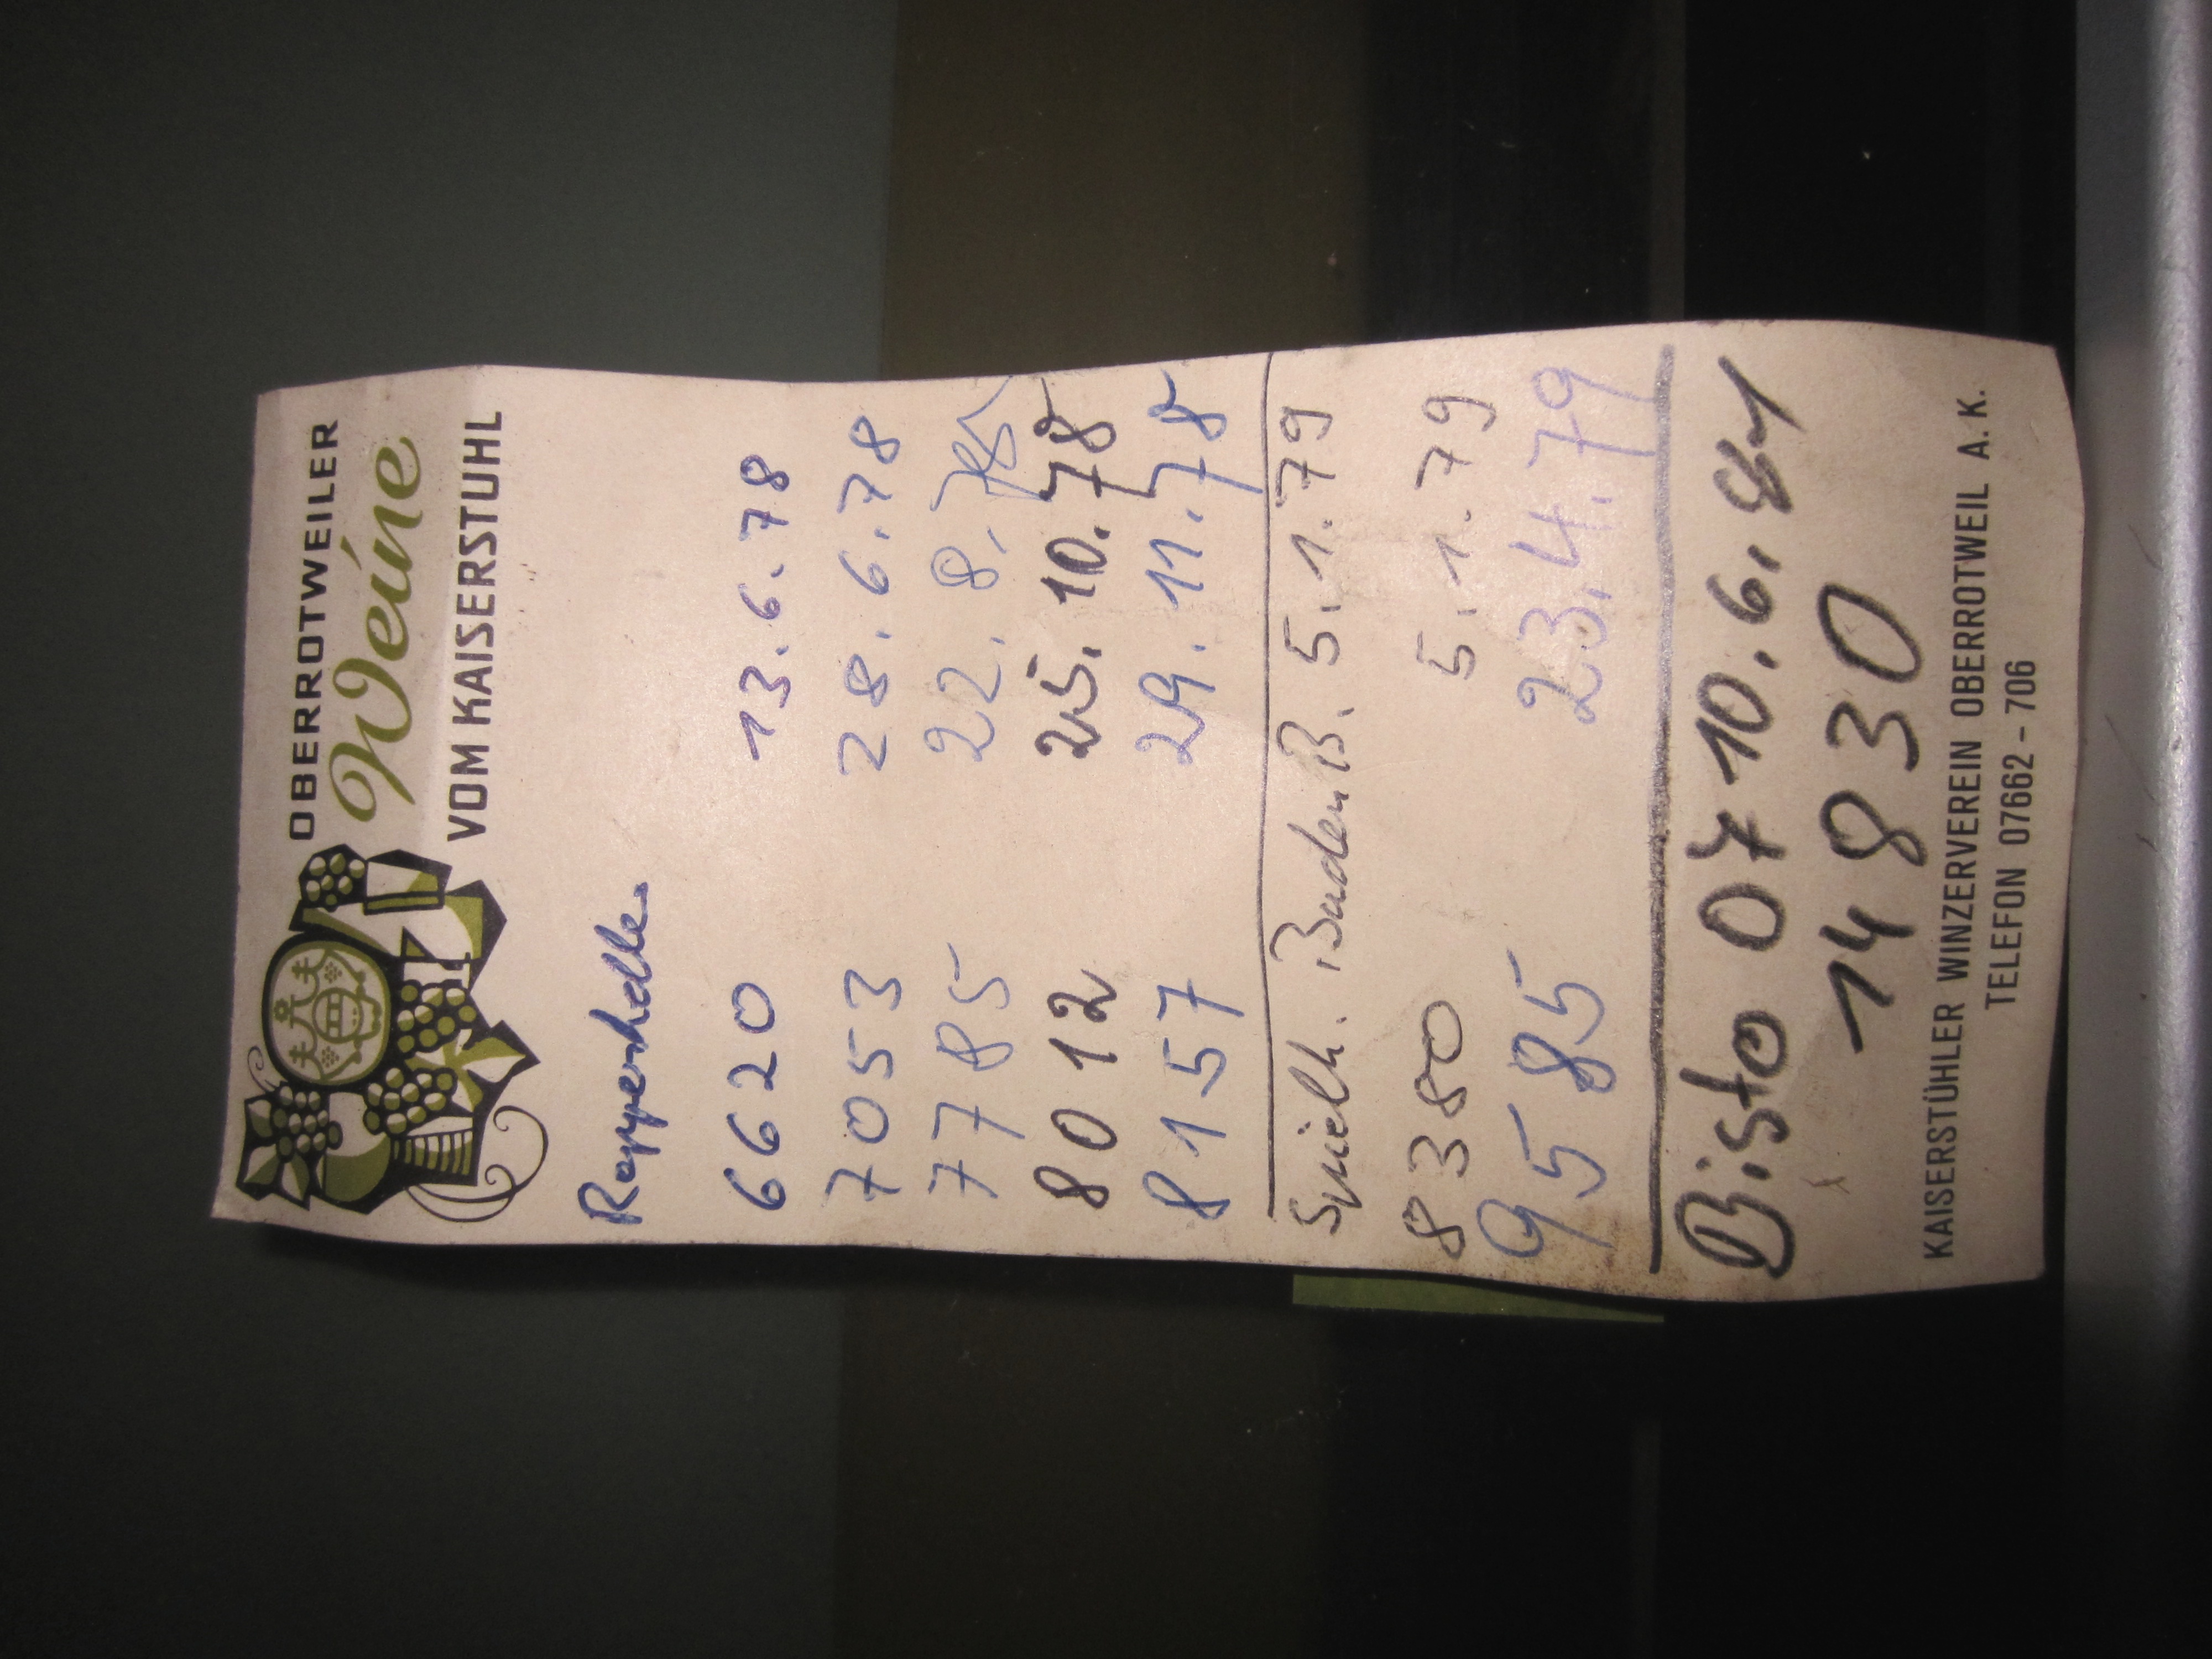 OBERROTWEILER
Weine
VOM KAISERSTUHL
6620 13.6.78
7053 28.6.78
7785 22.8.78
8012 25.10.78
8157 29.11.78
Spielh. Baden B. 5.1.79
8380 5.1.79
9585 23.4.79
Bisto 07 10.6.81
14830
KAISERSTÜHLER WINZERVEREIN OBERROTWEIL A.K.
TELEFON 07662-706